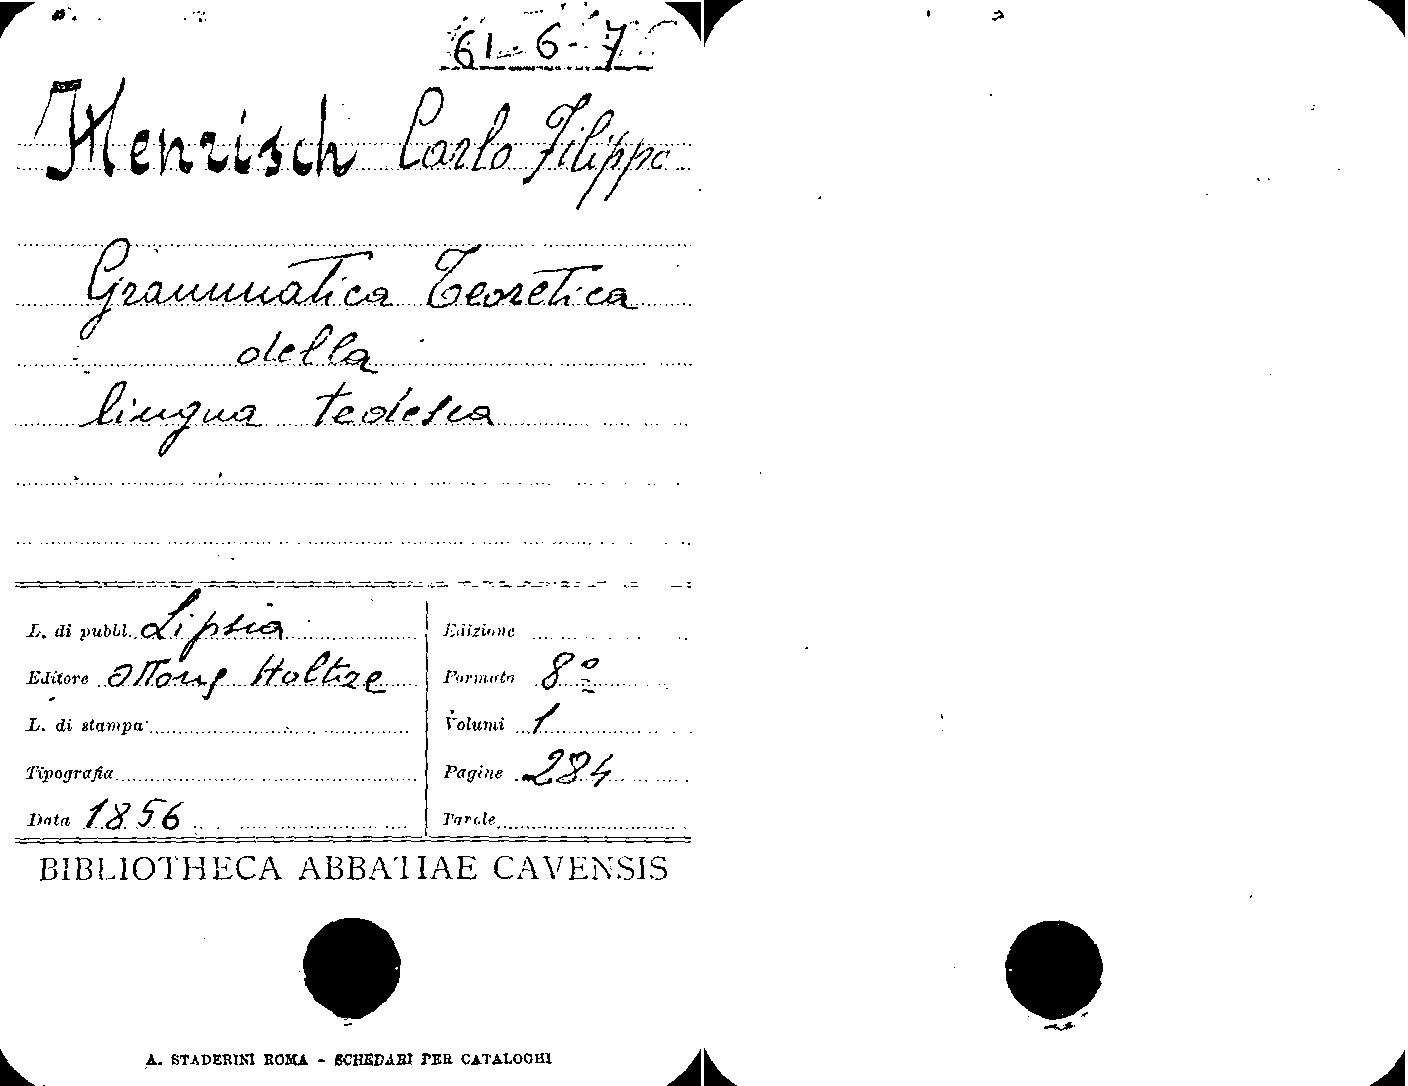 61-6-7
Henrisch Carlo Filippo
Grammatica Teoretica
della
lingua tedesca
L. di pubbl. Lipsia
Edizione
Editore Holtze
Formato 8º
L. di stampa
Volumi 1
Tipografia
Pagine 284
Data 1856
Tavole
BIBLIOTHECA ABBATIAE CAVENSIS
A. STADERINI ROMA - SCHEDARI PER CATALOGHI